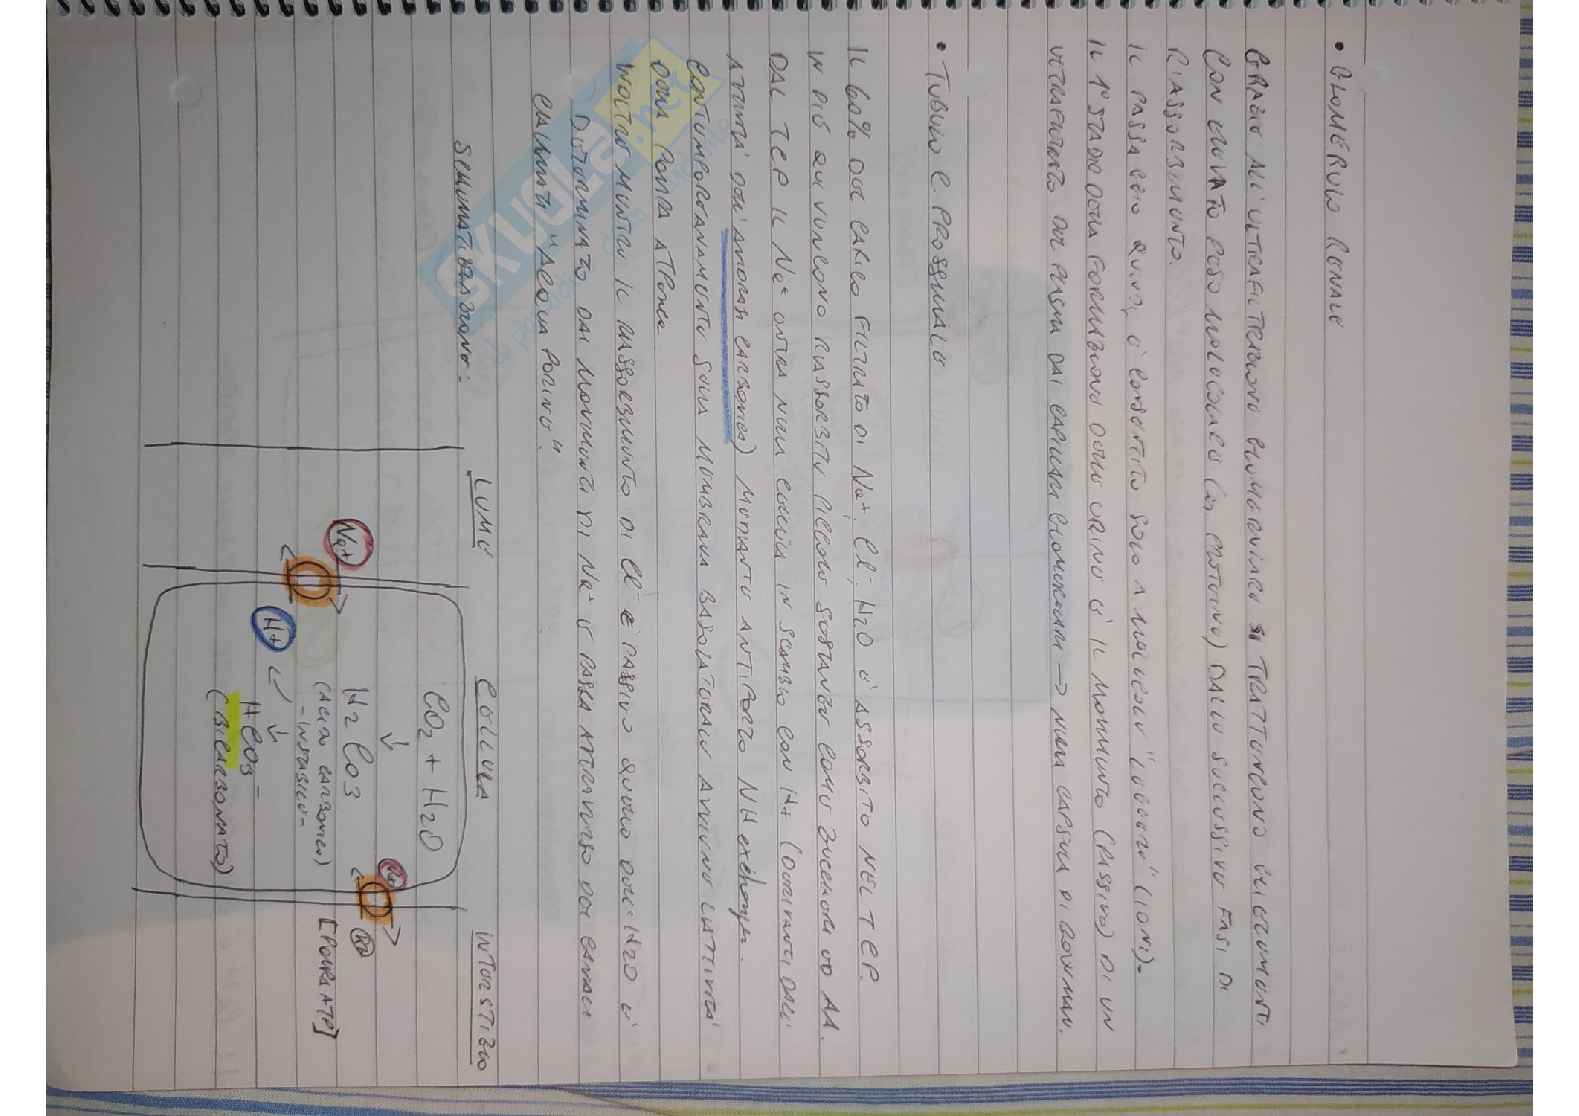 • GLOMERULO RENALE
GRAZIE ALL'ULTRAFILTRAZIONE GLOMERULARE SI TRATTENGONO GLI ELEMENTI
CON ELEVATO PESO MOLECOLARE (es PROTEINE) DALLE SUCCESSIVE FASI DI
RIASSORBIMENTO.
IL PASSAGGIO QUINDI È CONSENTITO SOLO A MOLECOLE "LIBERE" (IONI).
IL 1° STADIO DELLA FORMAZIONE DELLE URINE È IL MOVIMENTO (PASSIVO) DI UN
ULTRAFILTRATO DEL PLASMA DAI CAPILLARI GLOMERULARI → NELLA CAPSULA DI BOWMAN.
• TUBULO C. PROSSIMALE
IL 60% DEL CARICO FILTRATO DI Na+, Cl-, H2O È ASSORBITO NEL TCP.
IN PIÙ QUI VENGONO RIASSORBITE PICCOLE SOSTANZE COME ZUCCHERI ED AA.
DAL TCP IL Na+ ENTRA NELLA CELLULA IN SCAMBIO CON H+ (DERIVANTI DALL'
ATTIVITÀ DELL'ANIDRASI CARBONICA) MEDIANTE ANTIPORTO NH exchanger.
CONTEMPORANEAMENTE SULLA MEMBRANA BASOLATERALE AVVIENE L'ATTIVITÀ
DELLA POMPA ATPasica
INOLTRE MENTRE IL RIASSORBIMENTO DI Cl- È PASSIVO QUELLO DELL'H2O È
DETERMINATO DAI MOVIMENTI DI Na+ E PASSA ATTRAVERSO DEI CANALI
CHIAMATI "ACQUAPORINE".
SCHEMATIZZAZIONE:
LUME CELLULA INTERSTIZIO
CO2 + H2O
Na+
H2CO3
(ACIDO CARBONICO)
- INSTABILE -
[POMPA ATP]
Na+
H+
HCO3-
(BICARBONATO)
SKUOLA.net